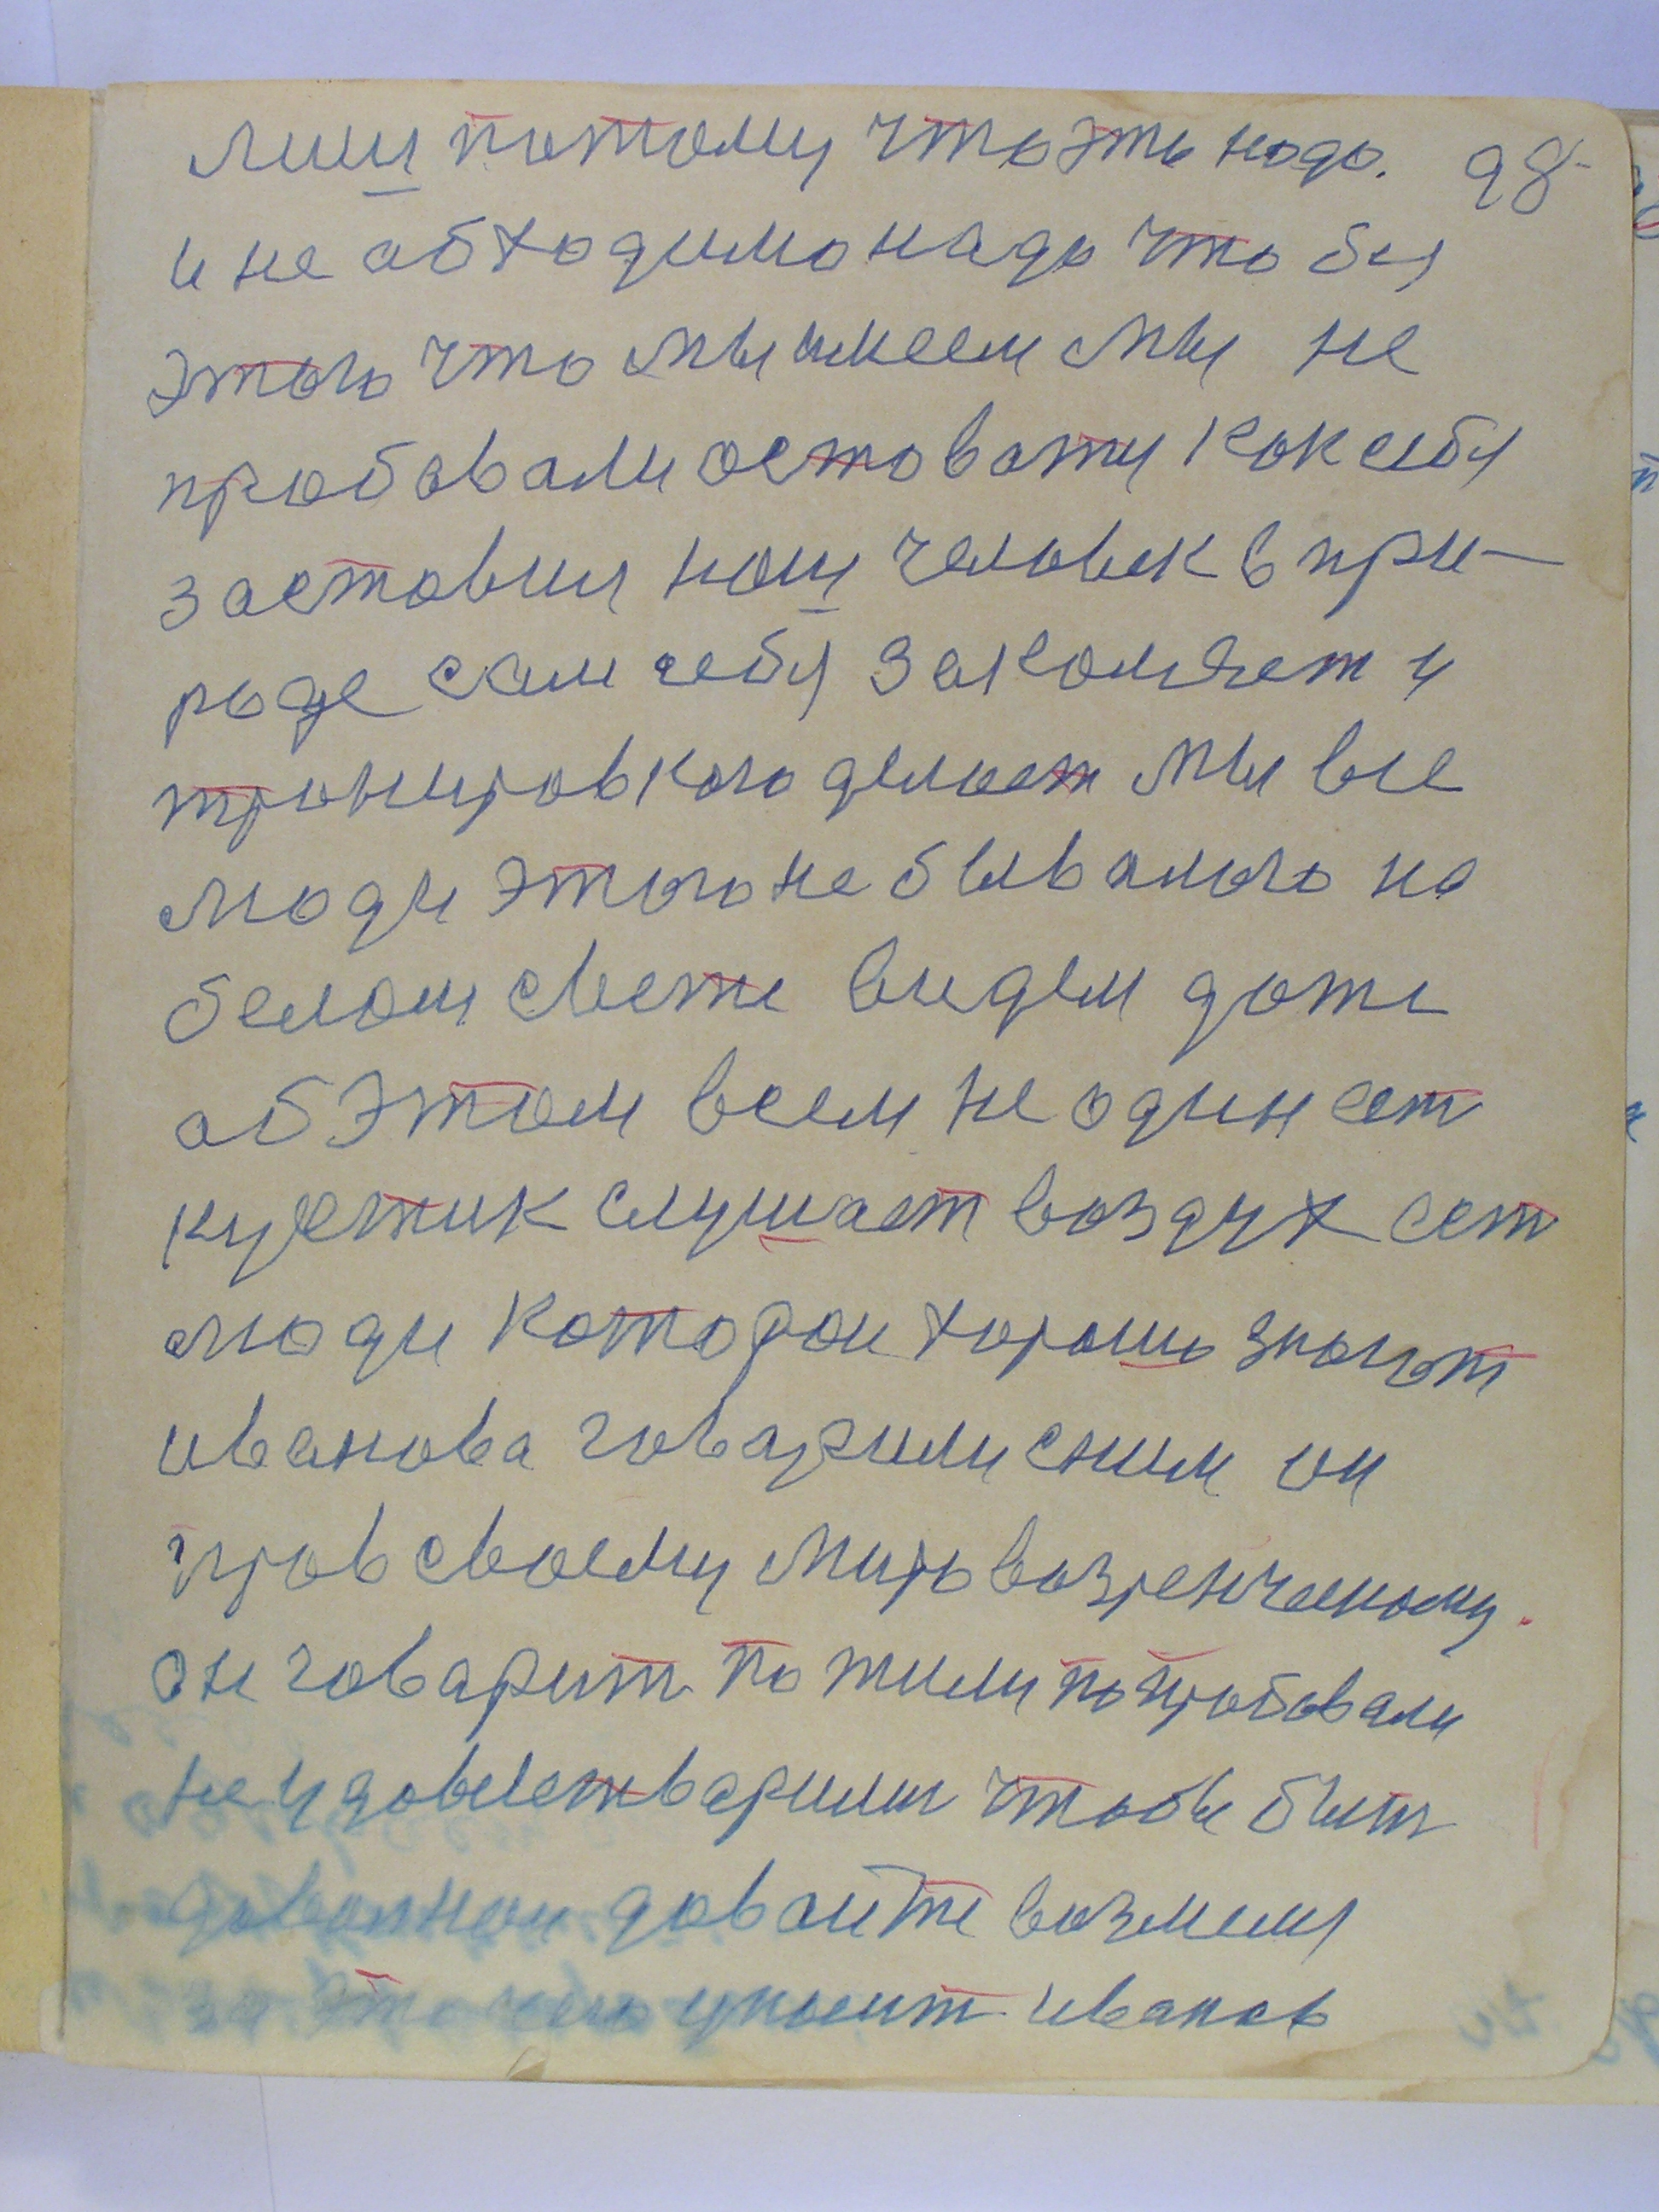 лиш потому что эты надо. 98
и не абходимо надо что бы
этого что мы имеем мы не
пробавали оставаты как себя
заставил наш человек в при-
роде сам себя закаляет и
транировкаю делает мы все
люди этого не бывалого на
белом свети видем дажи
аб этом всем не один ест
кужтик слушает воздух ест
люди каторои харошо знают
иванова говарили сним он
прав своему мировазренческому.
он говарит по жили попробавали
не удавлетварилис чтобы быт
давалнои давайти возмемся
за это чево училит иванов